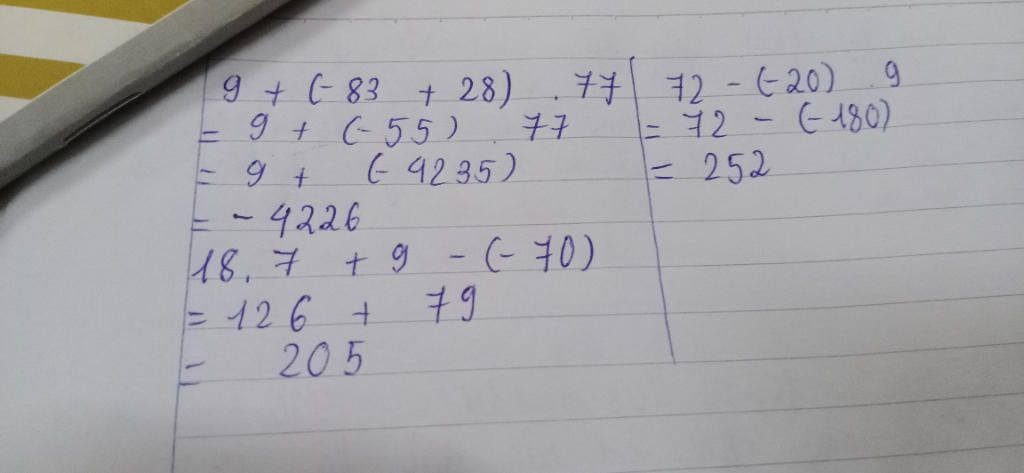 9 + (-83 + 28) . 77
= 9 + (-55) . 77
= 9 + (-4235)
= - 4226
18. 7 + 9 - (-70)
= 126 + 79
= 205
72 - (-20) . 9
= 72 - (-180)
= 252